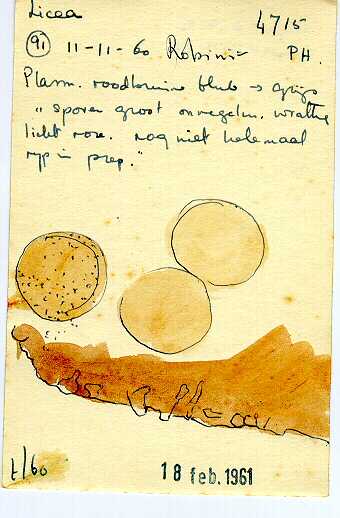 Licea
4715
91 11-11-60 Robinia PH.
Plasm. roodbruine blub → grijs
"sporen groot onregelm. wrattig
licht rose. nog niet helemaal
ryp in prep."
t/60
18 feb. 1961